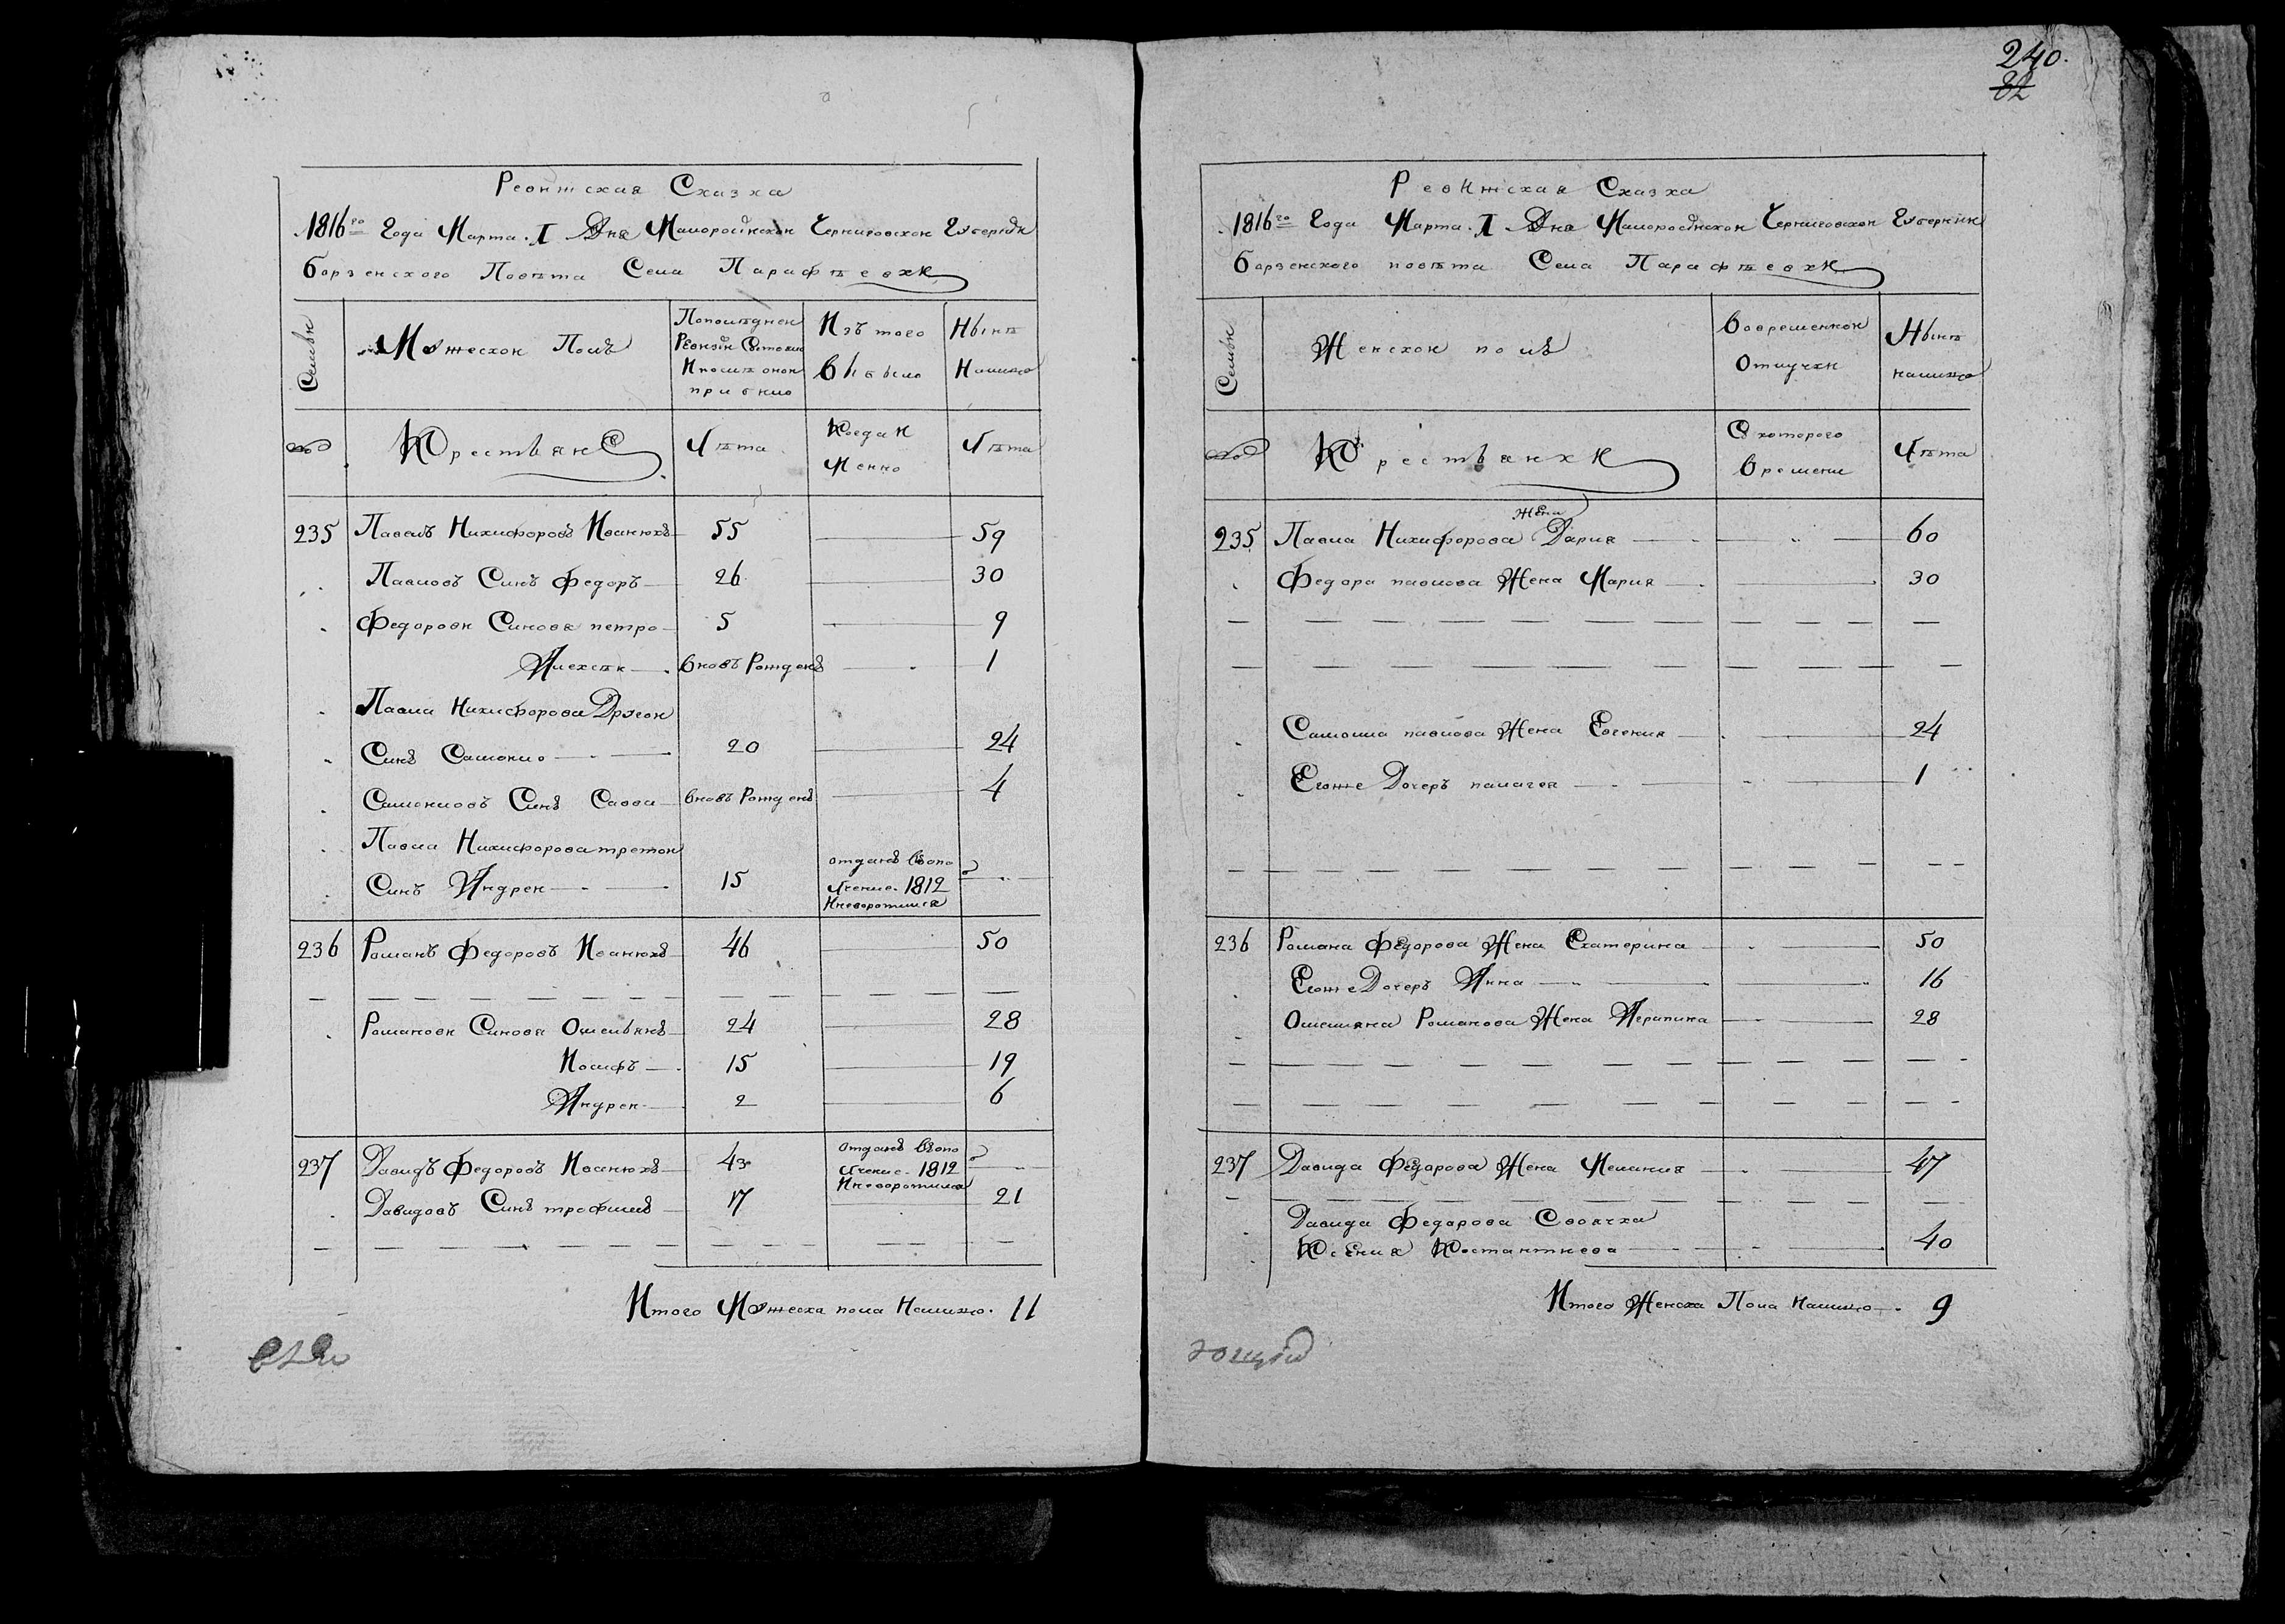 240.
82
Ревижская Сказка
1816го Года Марта. I Дня Малоросійской Черниговской Губерніи
борзенского Повѣта Села Парафѣевки
Семьи
Мужеской Полъ
Попоследней Ревизіи Состояло И послѣ оной прибыло
Изъ того выбыло
Нынѣ Налицо
№
Крестьяне
Лѣта
Когда И Менно
Лѣта
235 Павелъ Никифоровъ Иванюкъ 55 59
Павловъ Синъ Федоръ 26 30
Федорови Синовя петро 5 9
Алексѣй вновь Рожденъ 1
Павла Никифорова Другои
Синъ Самойло 20 24
Самойловъ Синъ Савва вновь Рожденъ 4
Павла Никифорова третои
Синъ Андрей 15 отданъ въопо лчение. 1812 Иневоротился
236 Романъ Федоровъ Иванюкъ 46 50
Романови Синовя Омельянъ 24 28
Иосифъ 15 19
Андрей 2 6
237 Давидъ Федоровъ Иванюкъ 43 отданъ въопо лчение. 1812 Иневоротился
Давидовъ Синъ трофимъ 17 21
Итого Мужеска пола Налицо. 11
Ревижская Сказка
1816го Года Марта. I Дня Малоросійской Черниговской Губерніи
борзенского повѣта Села Парафѣевки
Семьи
Женской полъ
Вовременной Отлучки
Нынѣ налицо
№
Крестьянки
С которого Времени
Лѣта
235 Павла Никифорова жена Дария 60
Федора павлова Жена Мария 30
Самоила павлова Жена Евгения 24
Егоже Дочеръ палагея 1
236 Романа Федорова Жена Екатерина 50
Егоже Дочеръ Анна 16
Омеляна Романова Жена Ирипина 28
237 Давида Федорова Жена Мелания 47
Давида Федорова Своячка
Ксения Константиева 40
Итого Женска Пола Налицо. 9